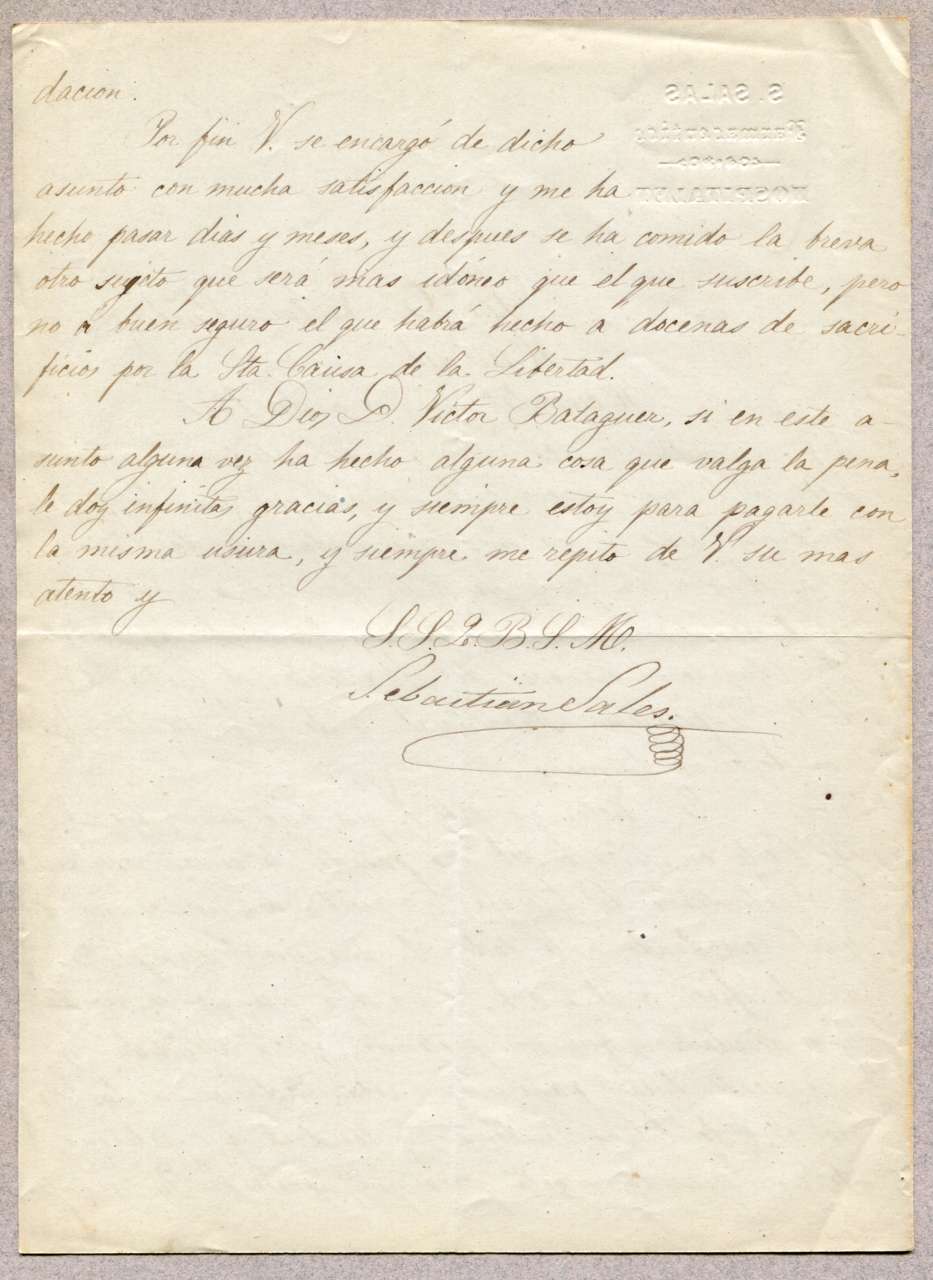 dacion.
S. SALAS
Farmacéutico
HOSPITALET
Por fin V. se encargó de dicho
asunto con mucha satisfaccion y me ha
hecho pasar dias y meses, y despues se ha comido la breva
otro sujeto que será mas idóneo que el que suscribe, pero
no á buen seguro el que habrá hecho a docenas de sacri-
ficios por la Sta. Causa de la Libertad.
A Dios D. Victor Balaguer, si en este a-
sunto alguna vez ha hecho alguna cosa que valga la pena,
le doy infinitas gracias, y siempre estoy para pagarle con
la misma usura, y siempre me repito de V. su mas
atento y
S. S. Q. B. S. M.
Sebastian Salas.